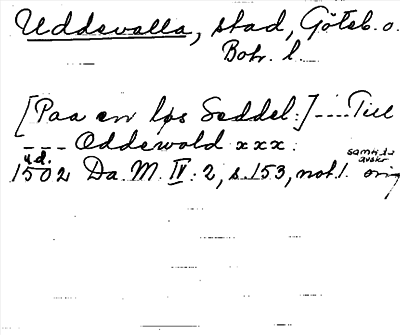 Uddevalla, stad, Göteb. o.
Boh. l.
[Paa en løs Seddel:] ---- Till
--- Oddewold xxx.
u.d.
1502 Da. M. IV: 2, s. 153, not 1. orig
samt. da
avskr